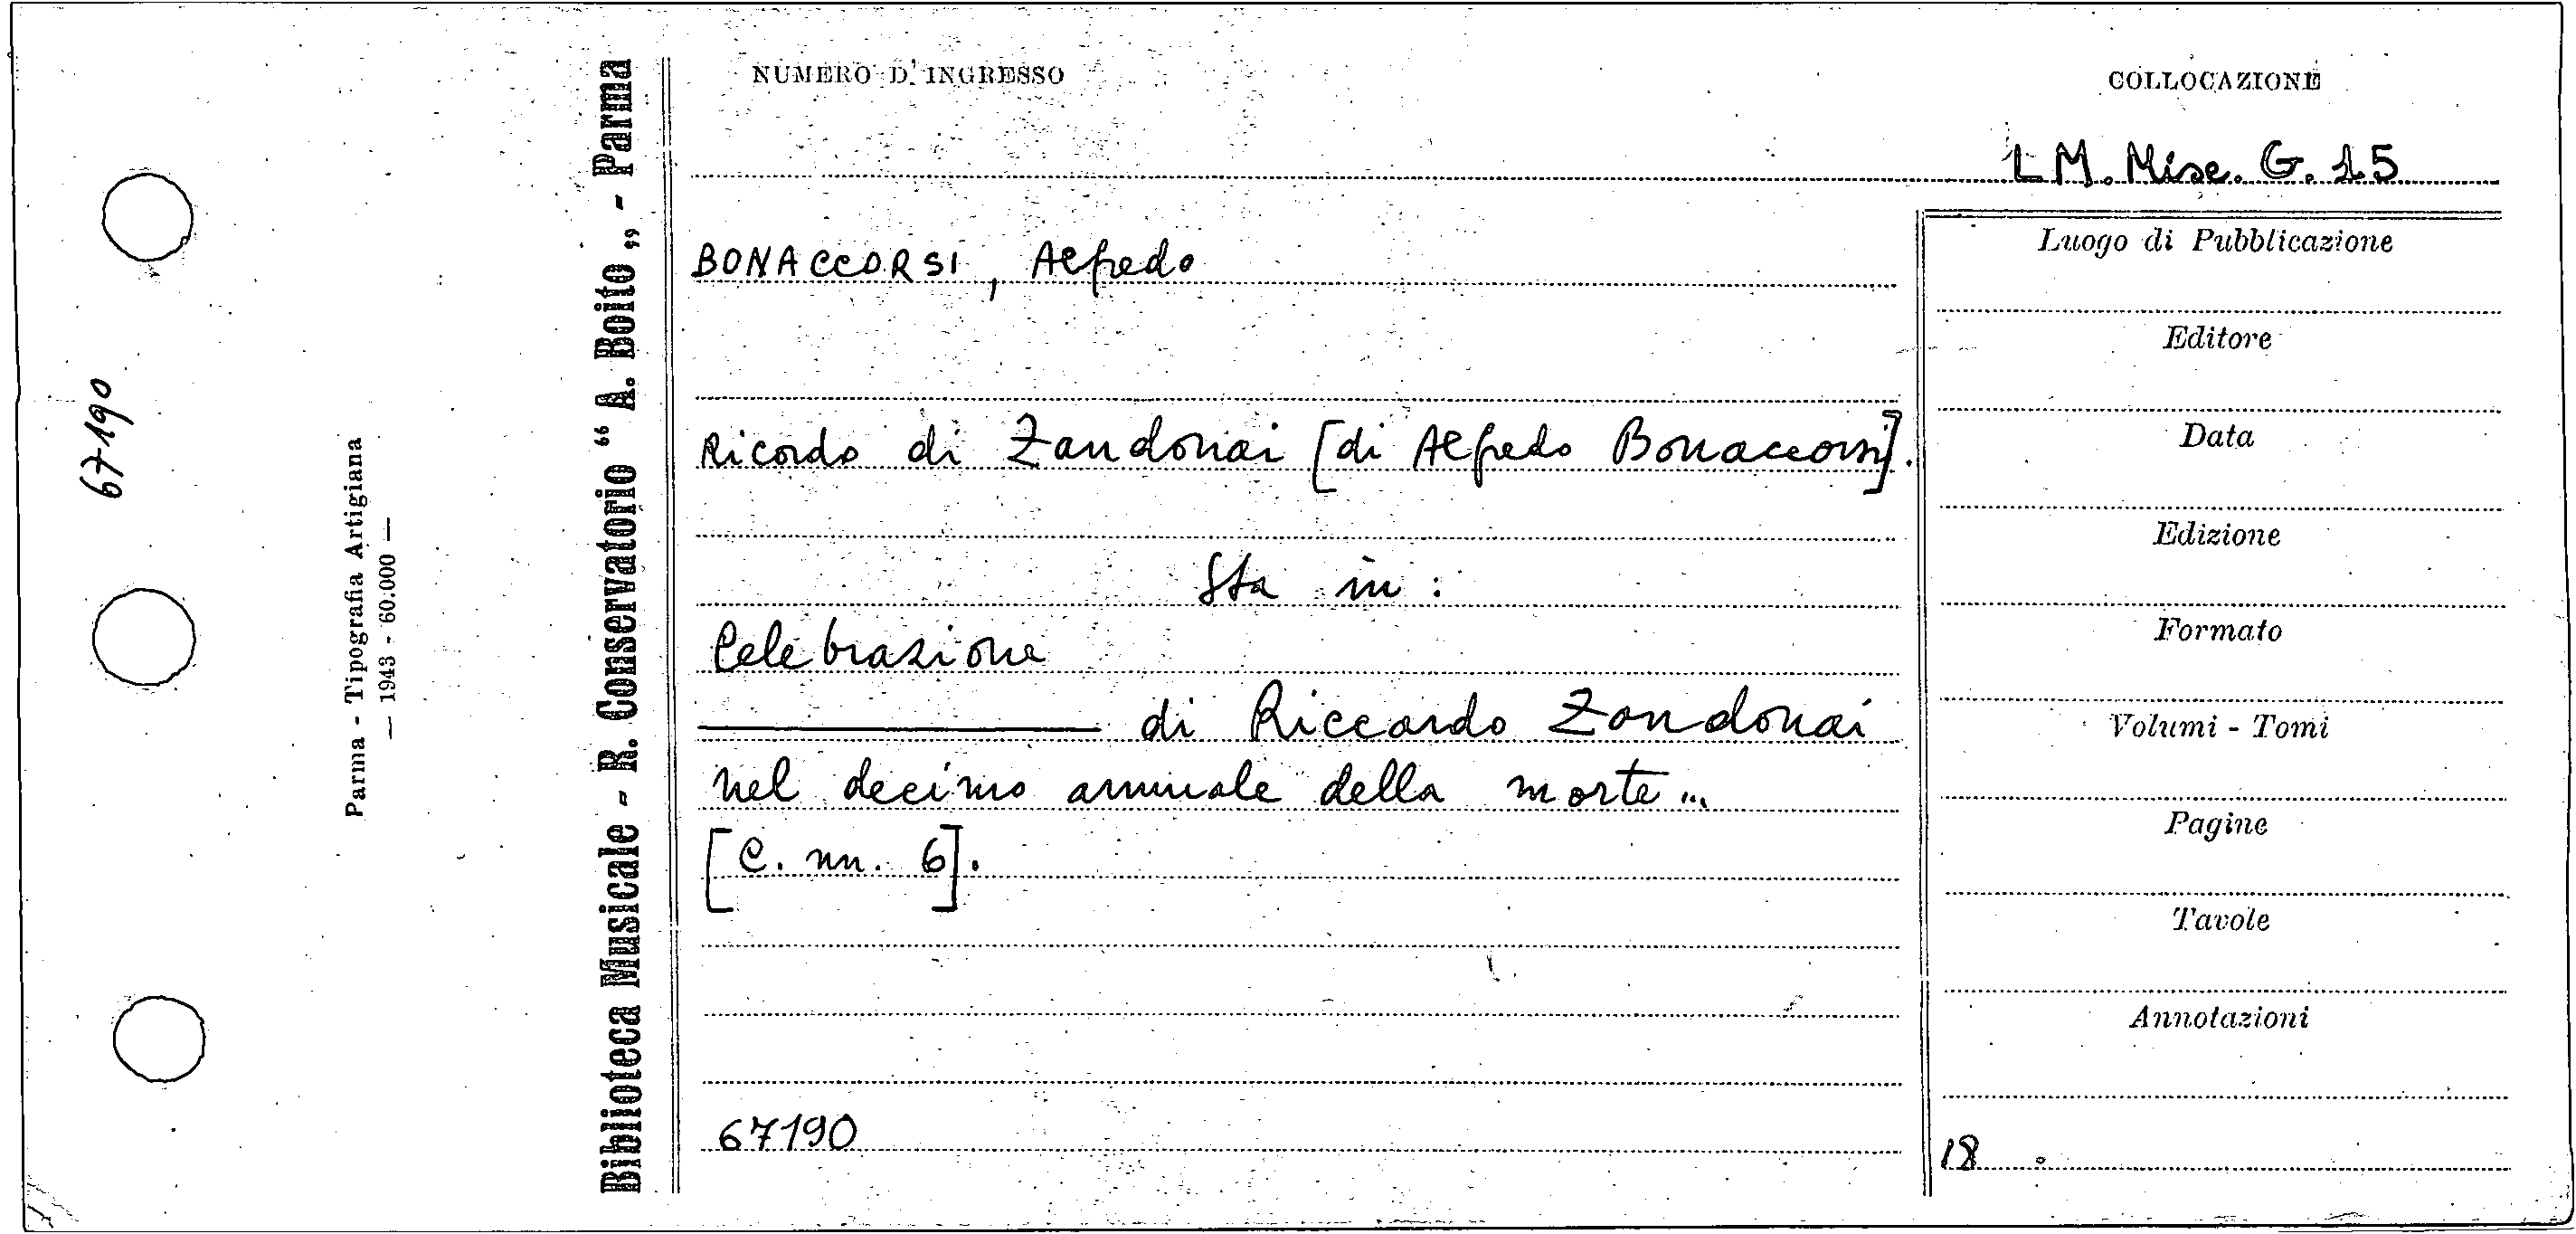 67190
Parma - Tipografia Artigiana
— 1943 - 60.000 —
Biblioteca Musicale - R. Conservatorio “ A. Boito „ - Parma
NUMERO D'INGRESSO
COLLOCAZIONE
LM. Misc. G. 15
BONACCORSI, Alfredo
Ricordo di Zandonai [di Alfredo Bonaccorsi].
Sta in :
Celebrazione
di Riccardo Zandonai
nel decimo annuale della morte...
[C. nn. 6].
67190
Luogo di Pubblicazione
Editore
Data
Edizione
Formato
Volumi - Tomi
Pagine
Tavole
Annotazioni
18